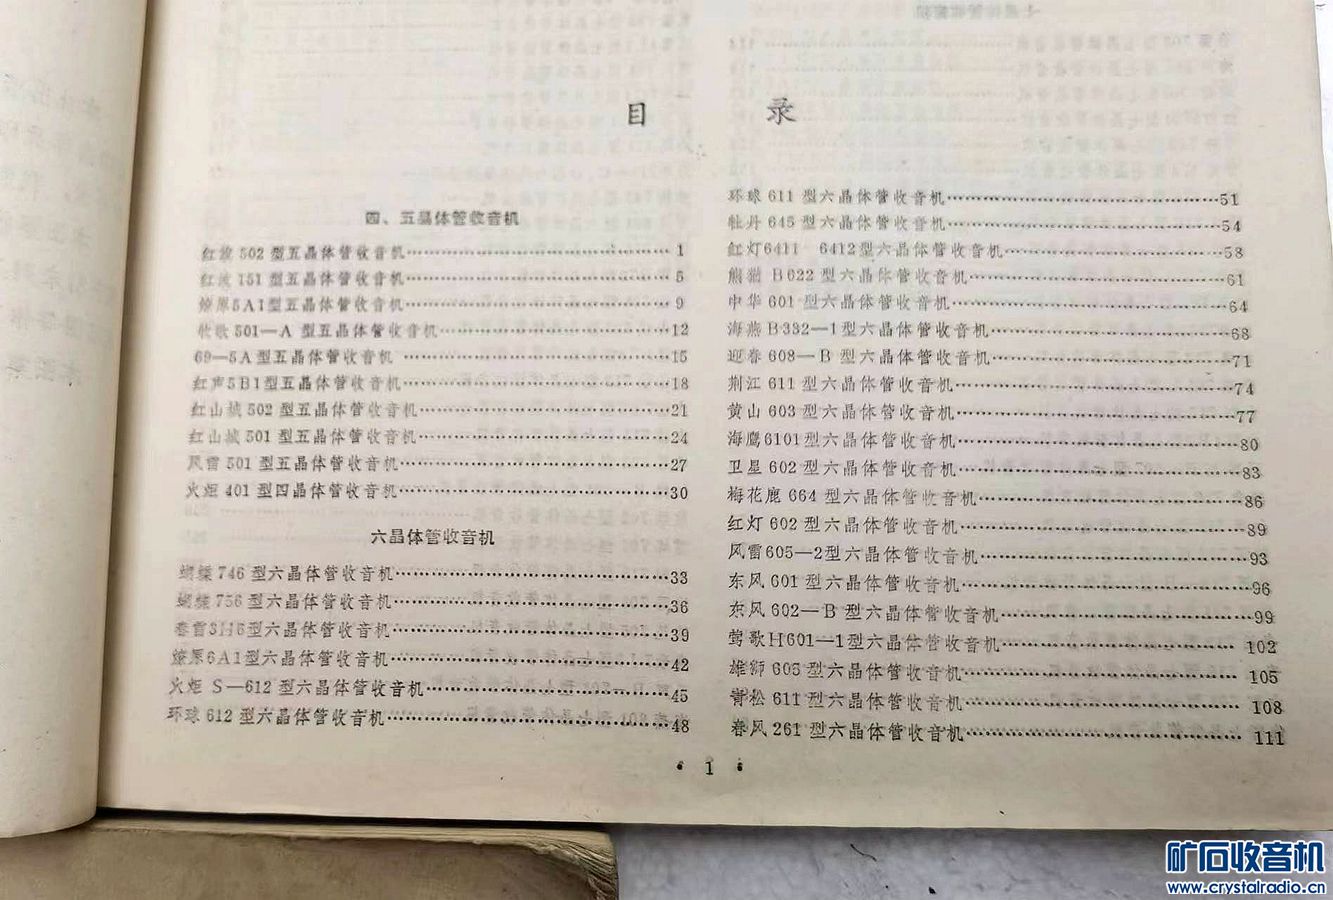 目 录
四、五晶体管收音机
红波 502 型五晶体管收音机……1
红波 151 型五晶体管收音机……5
燎原5A1型五晶体管收音机……9
牧歌501—A 型五晶体管收音机……12
69—5A型五晶体管收音机……15
红声5B1型五晶体管收音机……18
红山城 502 型五晶体管收音机……21
红山城 501 型五晶体管收音机……24
风雷 501 型五晶体管收音机……27
火炬 401 型四晶体管收音机……30
六晶体管收音机
蝴蝶 746 型六晶体管收音机……33
蝴蝶 756 型六晶体管收音机……36
春雷3H5型六晶体管收音机……39
燎原6A1型六晶体管收音机……42
火炬 S—612 型六晶体管收音机……45
环球 612 型六晶体管收音机……48
环球 611 型六晶体管收音机……51
牡丹 645 型六晶体管收音机……54
红灯6411 6412型六晶体管收音机……58
熊猫 B622 型六晶体管收音机……61
中华 601 型六晶体管收音机……64
海燕B332—1型六晶体管收音机……68
迎春 608—B 型六晶体管收音机……71
荆江 611 型六晶体管收音机……74
黄山 603 型六晶体管收音机……77
海鹰6101型六晶体管收音机……80
卫星 602 型六晶体管收音机……83
梅花鹿 664 型六晶体管收音机……86
红灯 602 型六晶体管收音机……89
风雷605—2型六晶体管收音机……93
东风 601 型六晶体管收音机……96
东风 602—B 型六晶体管收音机……99
莺歌H601—1型六晶体管收音机……102
雄狮 605 型六晶体管收音机……105
青松 611 型六晶体管收音机……108
春风 261 型六晶体管收音机……111
· 1 ·
矿石收音机
www.crystalradio.cn